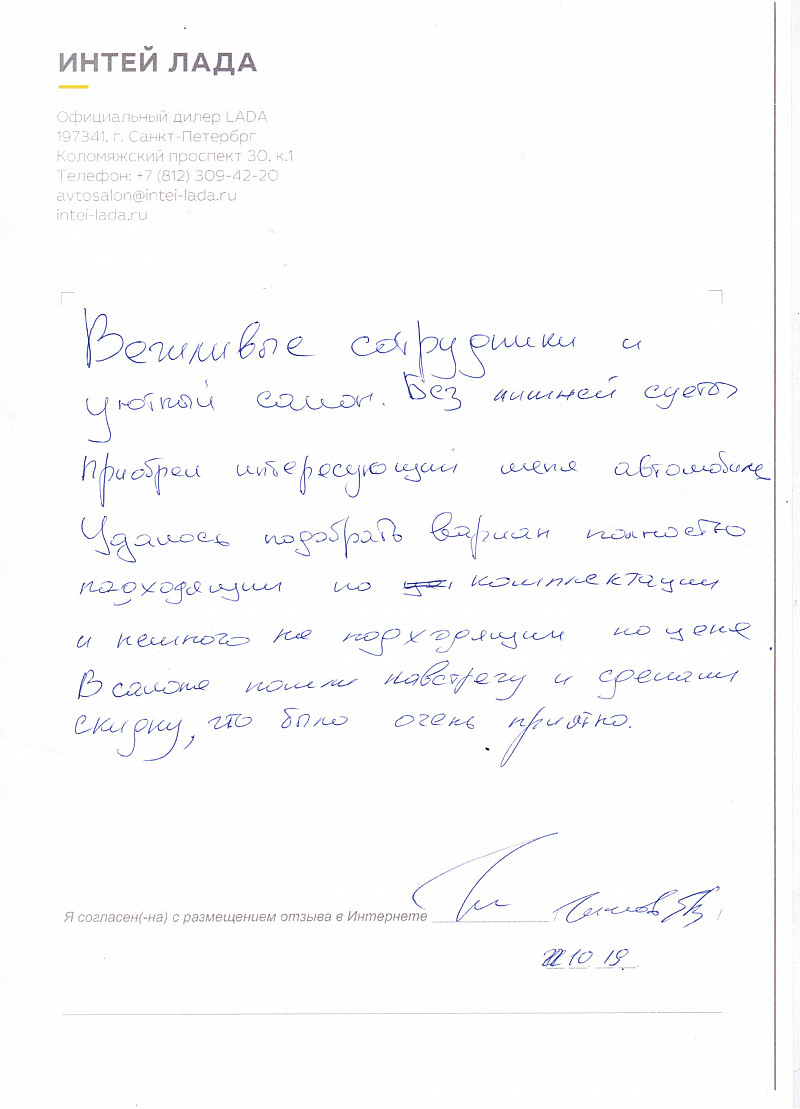 ИНТЕЙ ЛАДА
Официальный дилер LADA
197341, г. Санкт-Петербрг
Коломяжский проспект 30, к.1
Телефон: +7 (812) 309-42-20
avtosalon@intei-lada.ru
intei-lada.ru
Вежливые сотрудники и
уютный салон. Без лишней суеты
приобрел интересующий меня автомобиль
Удалось подобрать вариан полностью
подходящии по комплектации
и немного не подходящии по цене
В салоне пошли навстречу и сделали
скидку, что было очень приятно.
Я согласен(-на) с размещением отзыва в Интернете
10 19